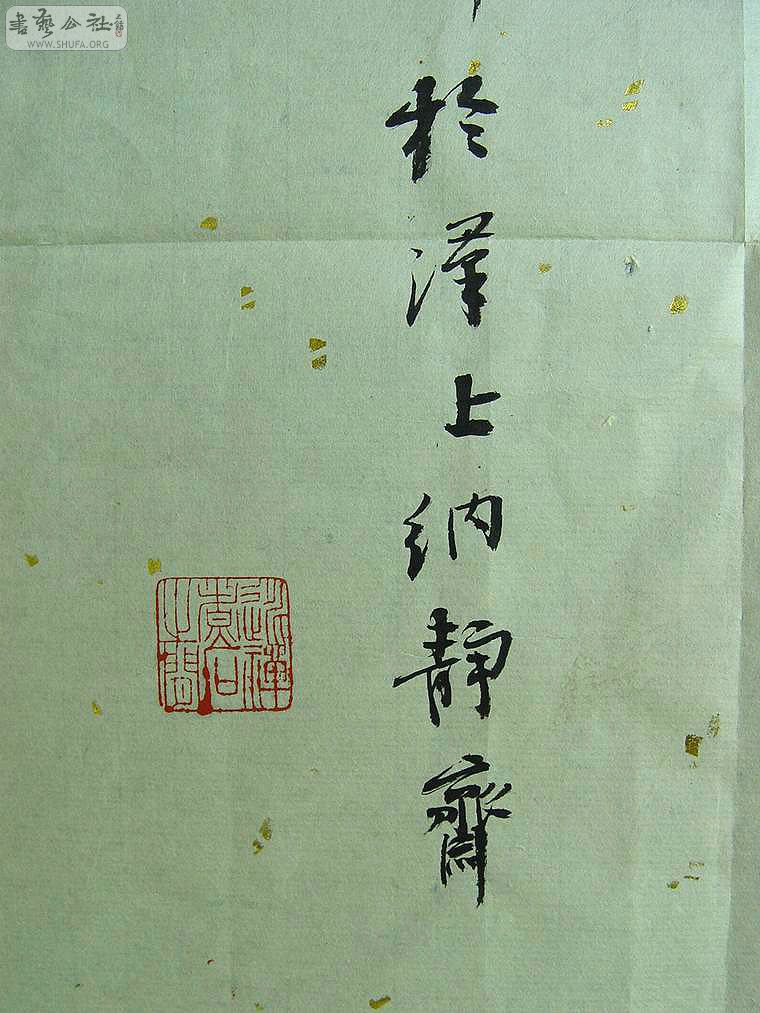 書藝公社
WWW.SHUFA.ORG
於漢上納靜齋